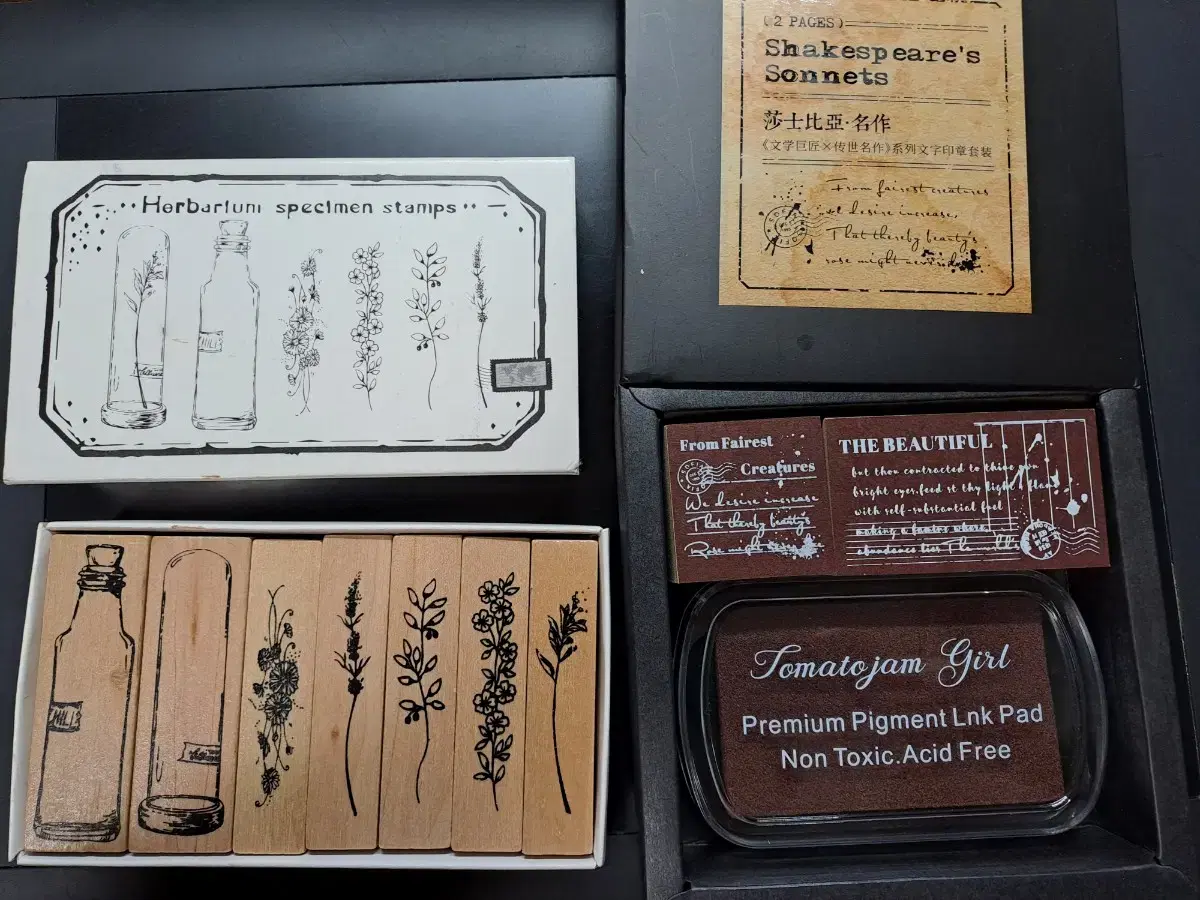 Herbarium specimen stamps
MILK
MILK
(2 PAGES)
Shakespeare's
Sonnets
莎士比亞·名作
《文学巨匠×传世名作》系列文字印章套装
From fairest creatures
we desire increase,
That thereby beauty's
rose might never die
From Fairest
Creatures
We desire increase
That thereby beauty's
Rose might
THE BEAUTIFUL
but thou contracted to thine own
bright eyes.feed st thy light flame
with self-substantial fuel
making a famine where
abundance lies The world's
Tomatojam Girl
Premium Pigment Lnk Pad
Non Toxic.Acid Free